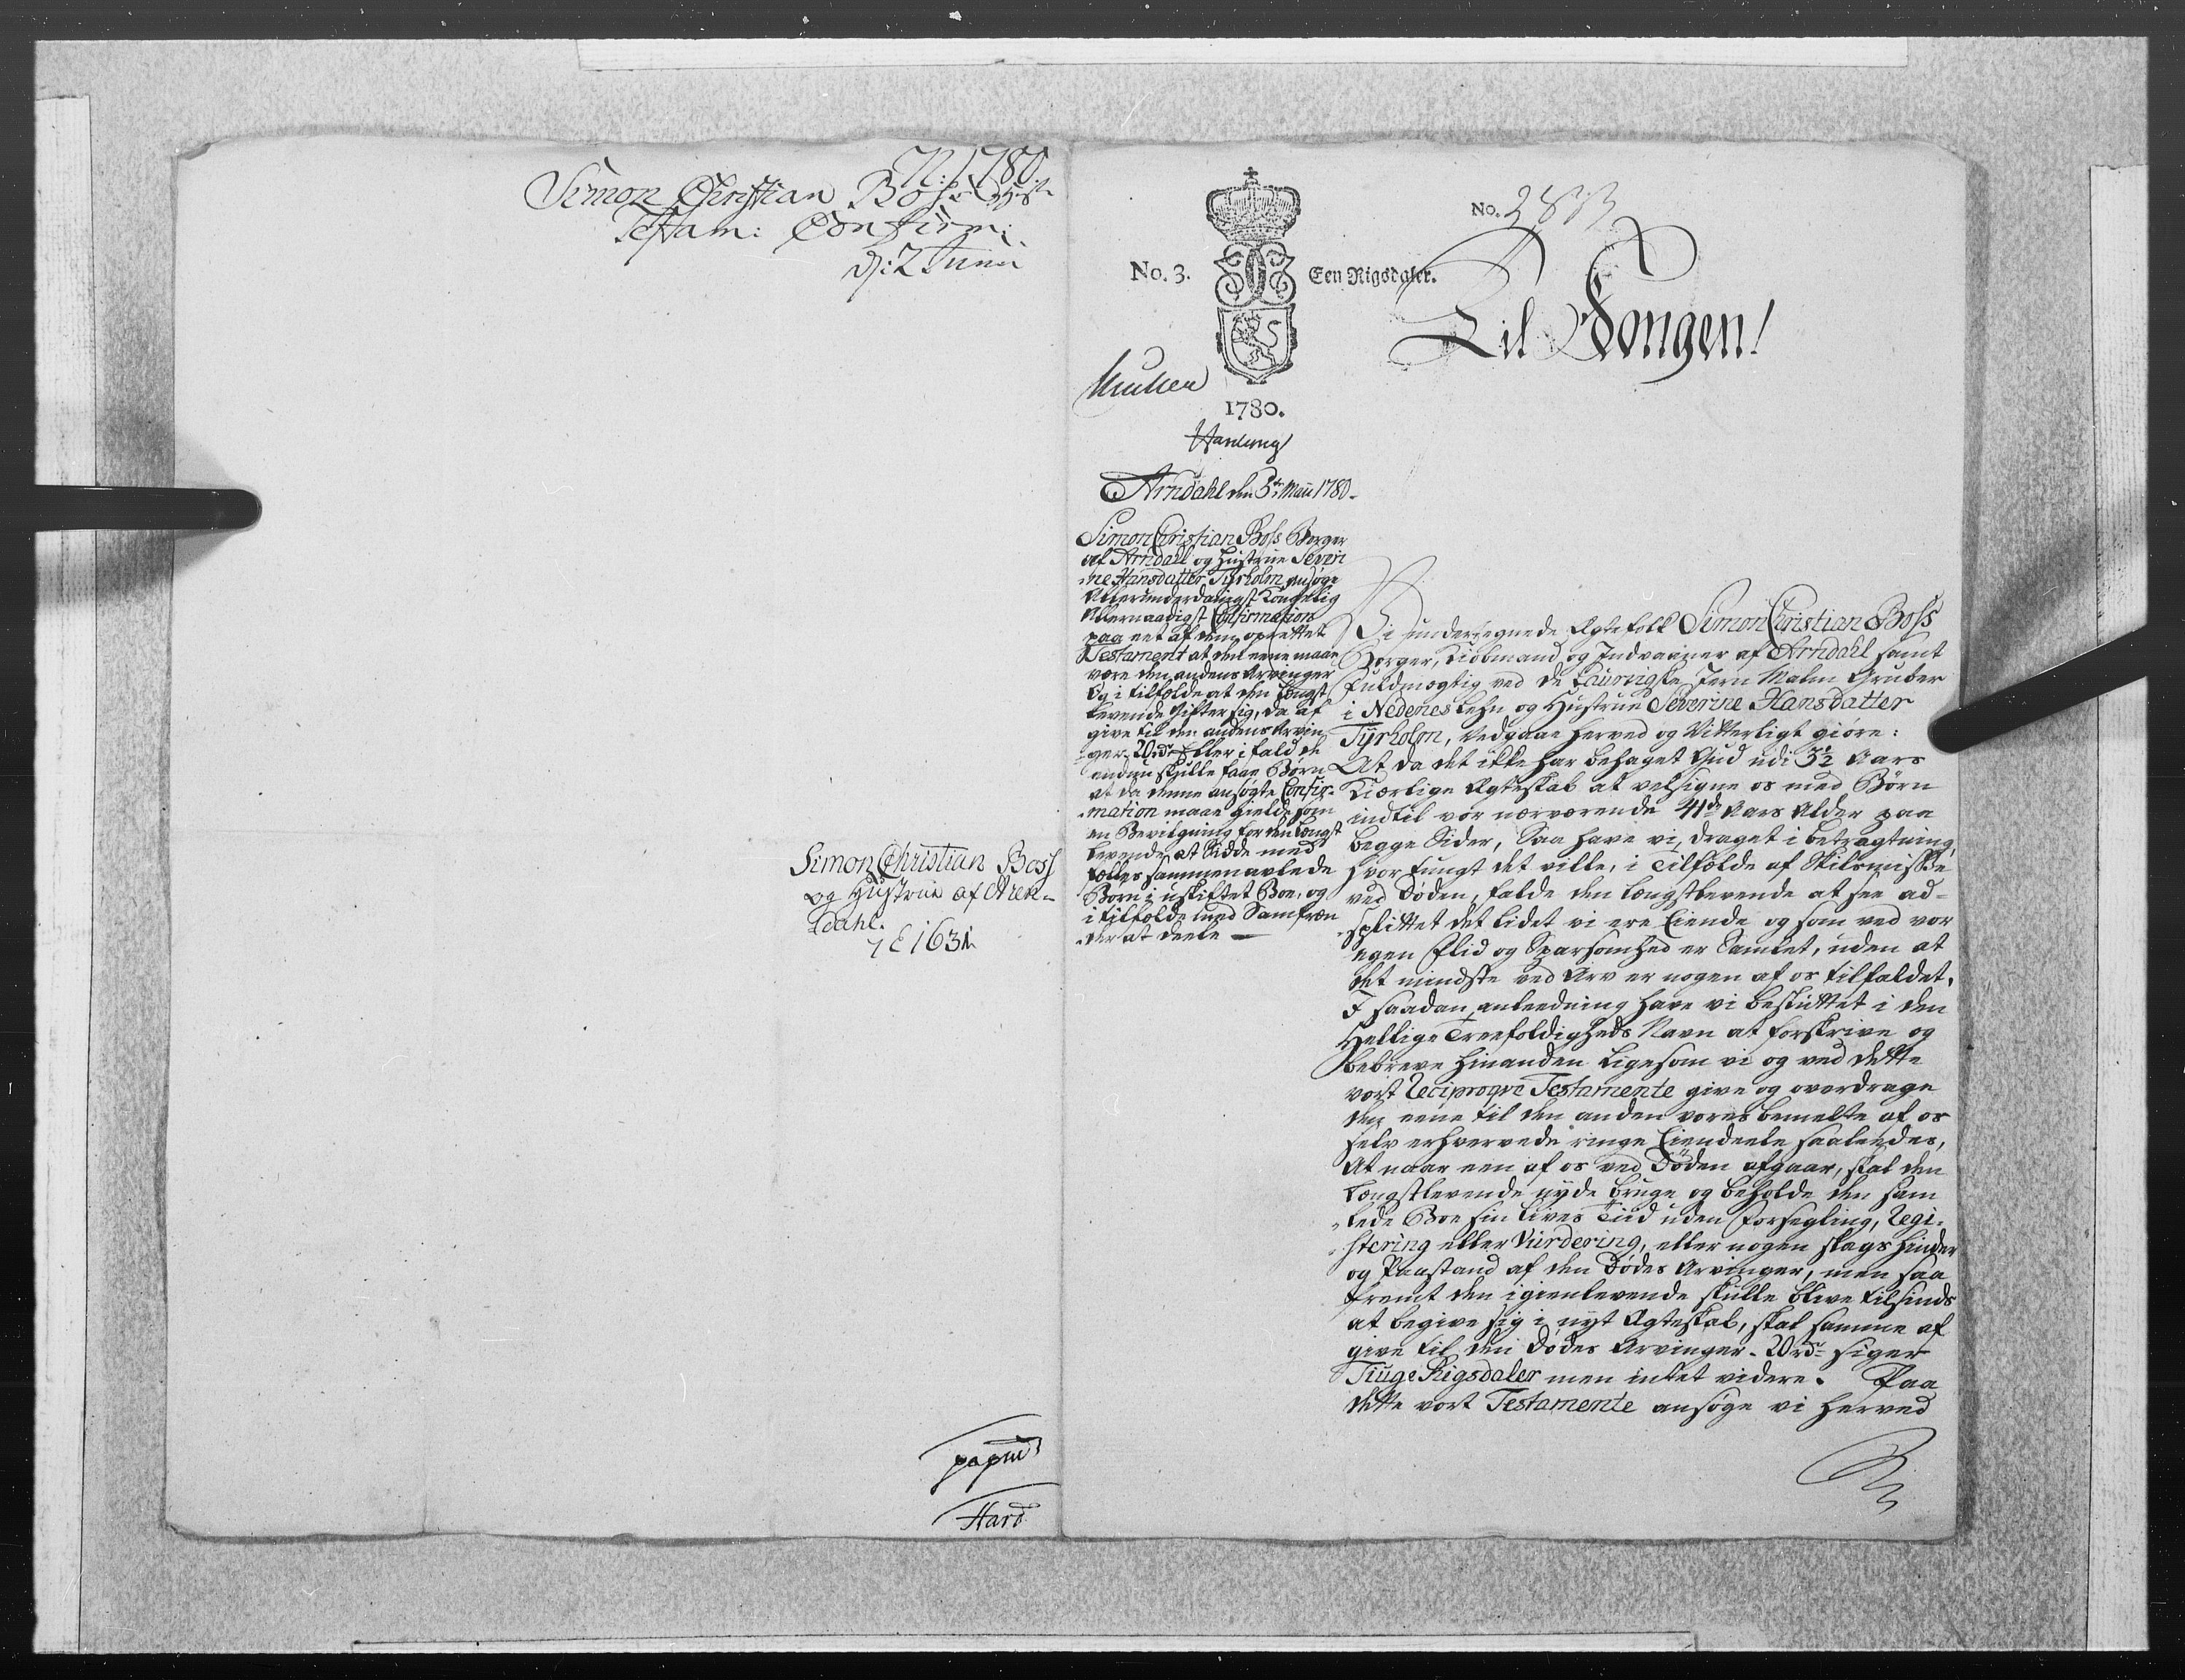 N: 1780.
Simon Christian Boss & Hust.
Testam: Confirm:
d: 2 Junii
Simon Christian Boss
og Hustrue af Aren-
dahl.
7 E 1631
papiir
Hard
No. 3.
Een Rigsdaler.
1780.
No. 2833
Til Kongen!
Arndahl den 3de Maii 1780.
Simon Christian Boss Borger
af Arndahl og Hustrue Severi
-ne Hansdatter Tyrholm, ansøge
Allerunderdanigst Kongelig
Allernaadigst Confirmation
paa eet af dem oprettet
Testament at den eene maae
være den andens Arvinger
Og i tilfælde at den længst
levende gifter sig, da af
give til den andens Arvin
-ger 20rdr Eller i fald de
endnu skulle faae Børn
at da denne ansøgte Confir-
-mation maae gielde som
en Bevilgning for den længst
levende at sidde med
fælles sammenavlede
Børn i uskiftet Boe, og
i tilfælde med Samfræn
-der at deele —
Vi undertegnede Ægtefolk Simon Christian Boss
Borger, Kiøbmand og Indvaaner af Arndahl samt
Fuldmægtig ved de Laurvigske Jern Malm Gruber
i Nedenes Lehn og Hustrue Severine Hansdatter
Tyrholm, Vedgaae herved og Vitterligt giøre:
At da det ikke har behaget Gud udi 3½ Aars
Kiærlige Ægteskab at velsigne os med Børn
indtil vor nærværende 41de Aars Alder paa
begge Sider, Saa have vi, draget i betragtning,
hvor tungt det ville, i Tilfælde af Skilsmisse
ved Døden, falde den længstlevende at see ad-
-splittet det lidet vi ere Eiende og som ved vor
egen Flid og Sparsomhed er Samlet, uden at
det mindste ved Arv er nogen af os tilfaldet.
I saadan anleedning have vi besluttet i den
Hellige Treefoldigheds Navn at forskrive og
bebreve hinanden ligesom vi og ved dette
vort Reciproqve Testamente give og overdrage
den eene til den anden vores bemelte af os
selv erhvervede ringe Eiendeele saaleedes,
At naar een af os ved Døden afgaar, skal den
længstlevende nyde bruge og beholde den sam
-lede Boe sin Lives Tiid uden Forsegling, Regi-
-stering eller Vurdering, eller nogen slags hinder
og Paastand af den Dødes Arvinger, men saa
fremt den igienlevende skulle blive tilsinds
at begive sig i nyt Ægteskab, skal samme af
give til den Dødes Arvinger 20rdr siger
Tiuge Rigsdaler men intet videre. Paa
dette vort Testamente ansøge vi herved